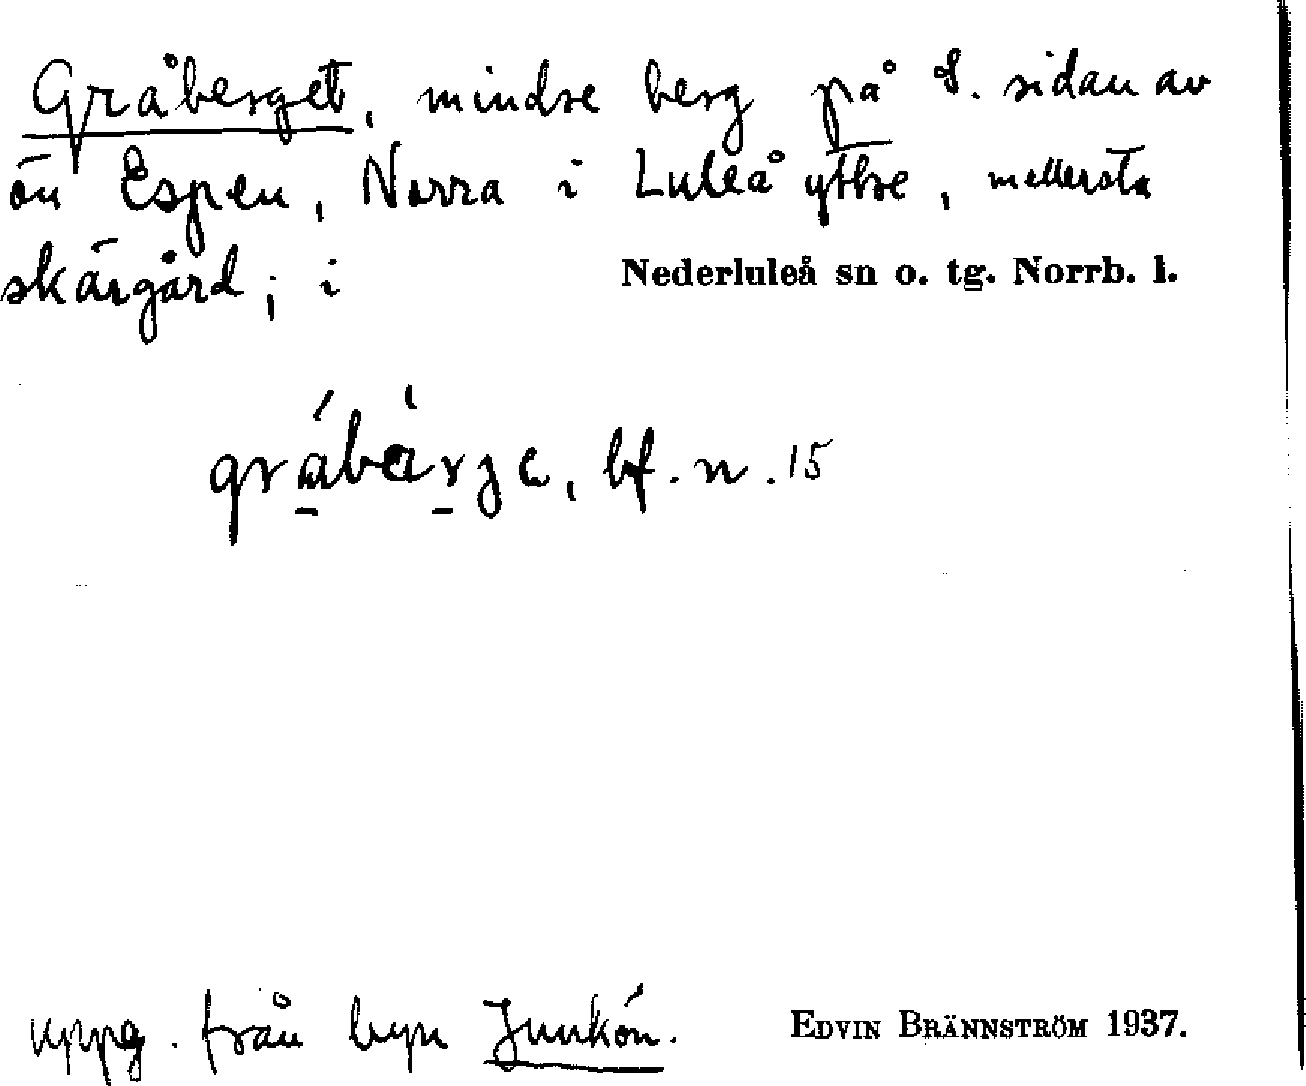 Gråberget, mindre berg på S. sidan av
ön Espen, Norra i Luleå yttre, mellersta
skärgård; i Nederluleå sn o. tg. Norrb. l.
bf. n. 15
uppg. från byn Junkön. EDVIN BRÄNNSTRÖM 1937.